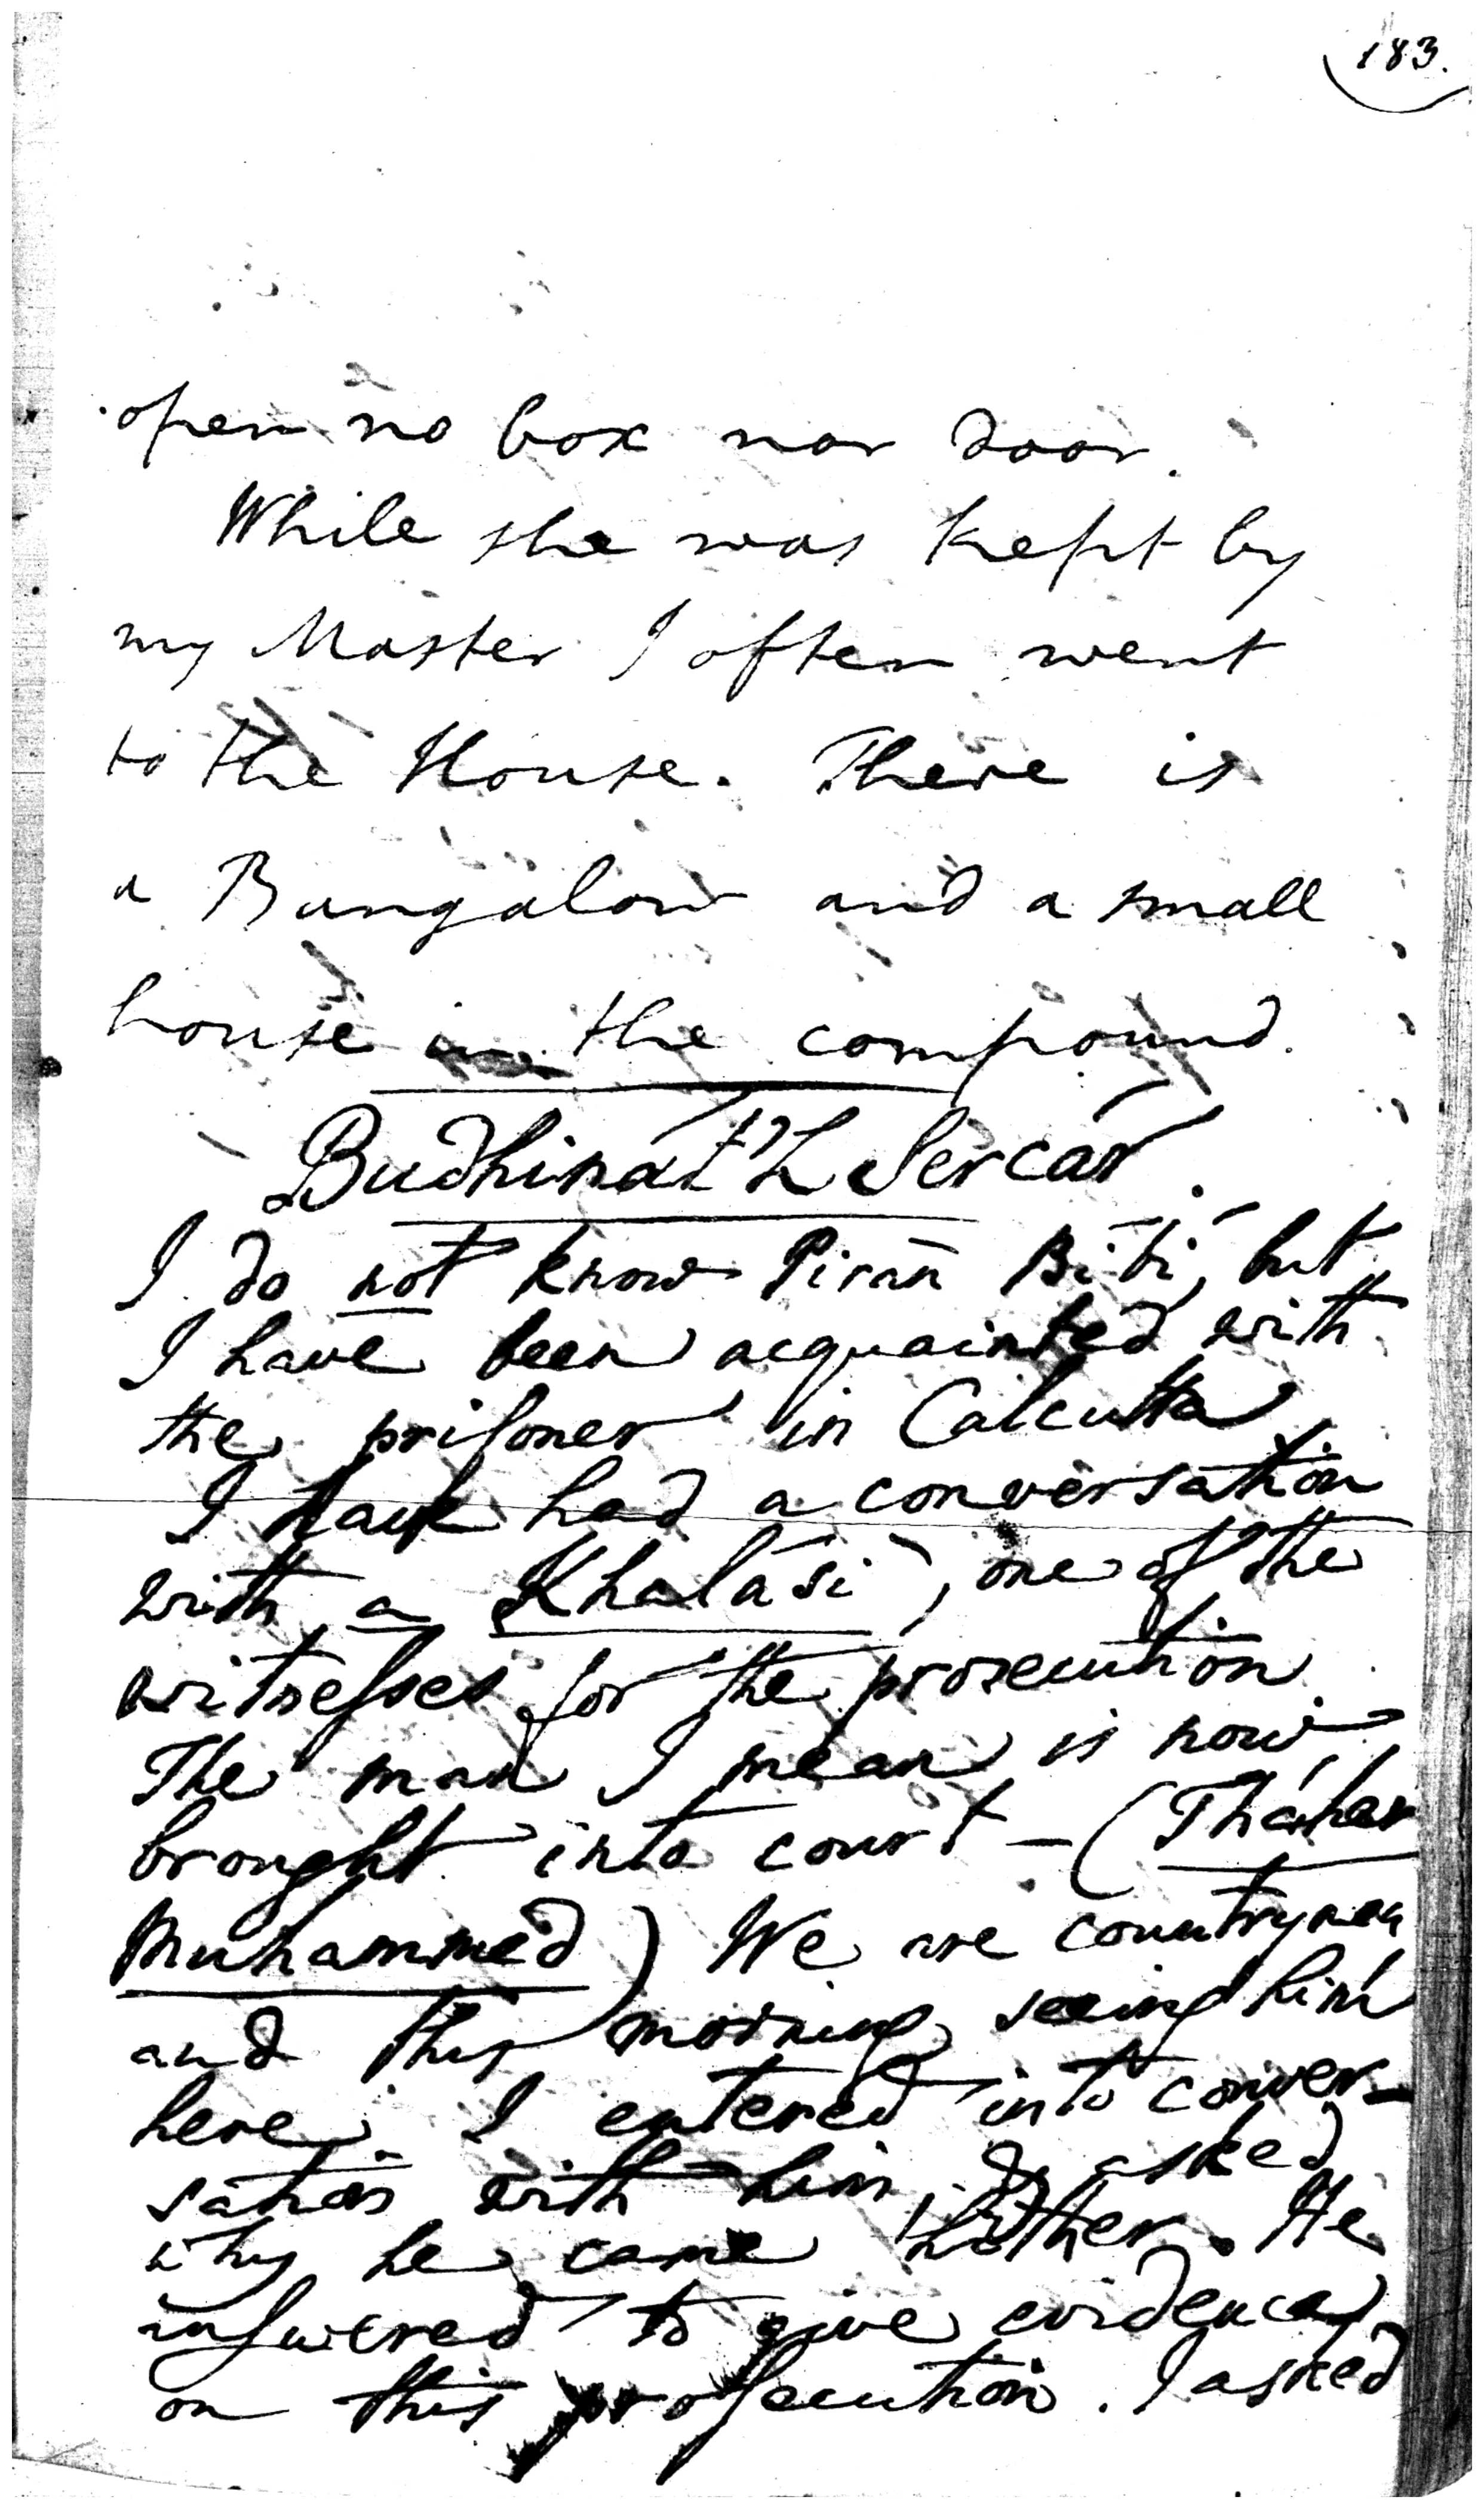 183.
open no box nor door.
While she was kept by
my Master I often went
to the House. There is
a Bungalow and a small
house in the compound.
Budhinat'h Sercár.
I do not know Pirán Bíbí, but
I have been acquainted with
the prisoner in Calcutta.
I have had a conversation
with a Khalásí, one of the
witnesses for the prosecution.
The man I mean is now
brought into court – (Tháher
Muhammed) We are countrymen
and this morning seeing him
here I entered into conver-
sation with him, & asked
why he came hither. He
answered to give evidence
on this prosecution. I asked